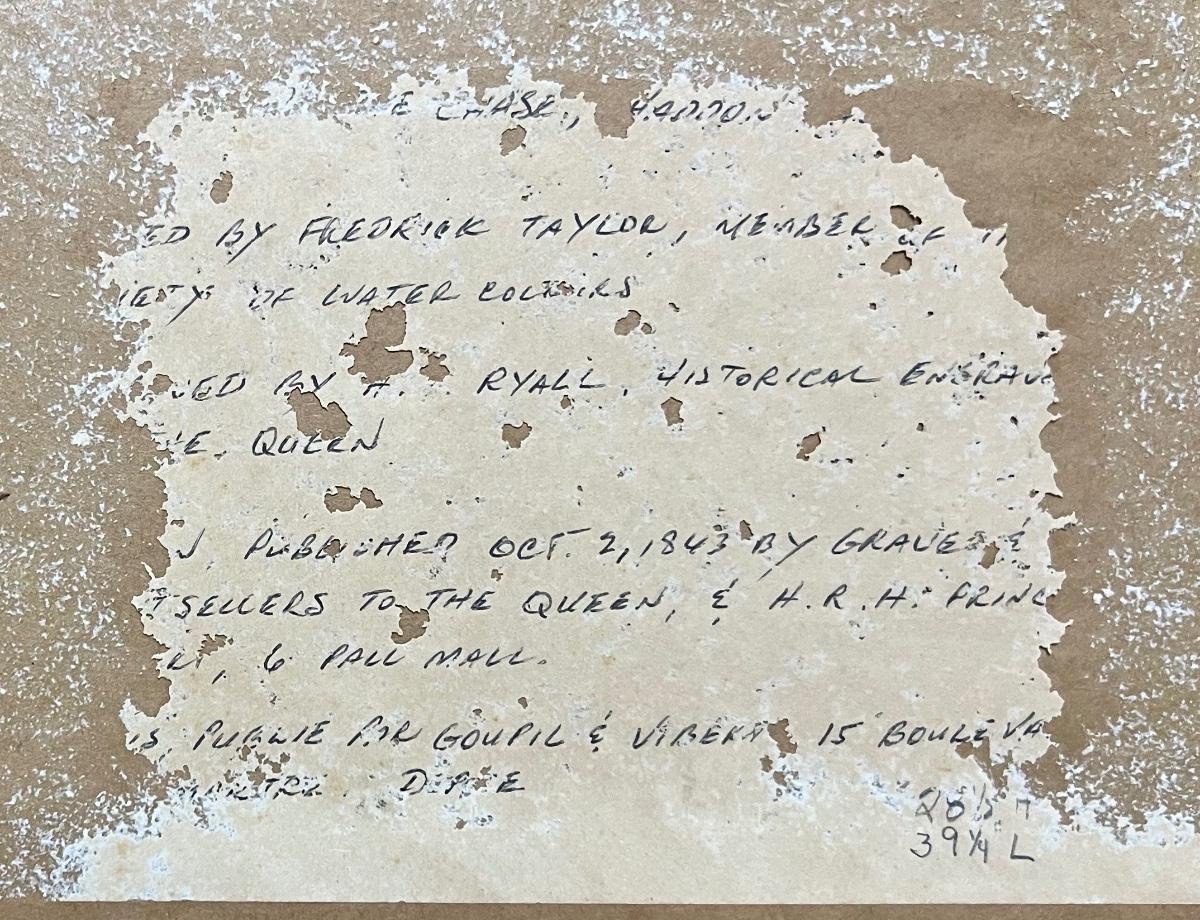 E CHASE, HADDON
ED BY FREDRICK TAYLOR, MEMBER OF
IETY OF WATER COLOURS
VED BY H. RYALL, HISTORICAL ENGRAV
E QUEEN
N, PUBLISHED OCT. 2, 1843 BY GRAVES &
TSELLERS TO THE QUEEN, & H.R.H. PRINC
RT, 6 PALL MALL.
IS, PUBLIE PAR GOUPIL & VIBERT 15 BOULEVA
MARTRE.
39 1/4 L